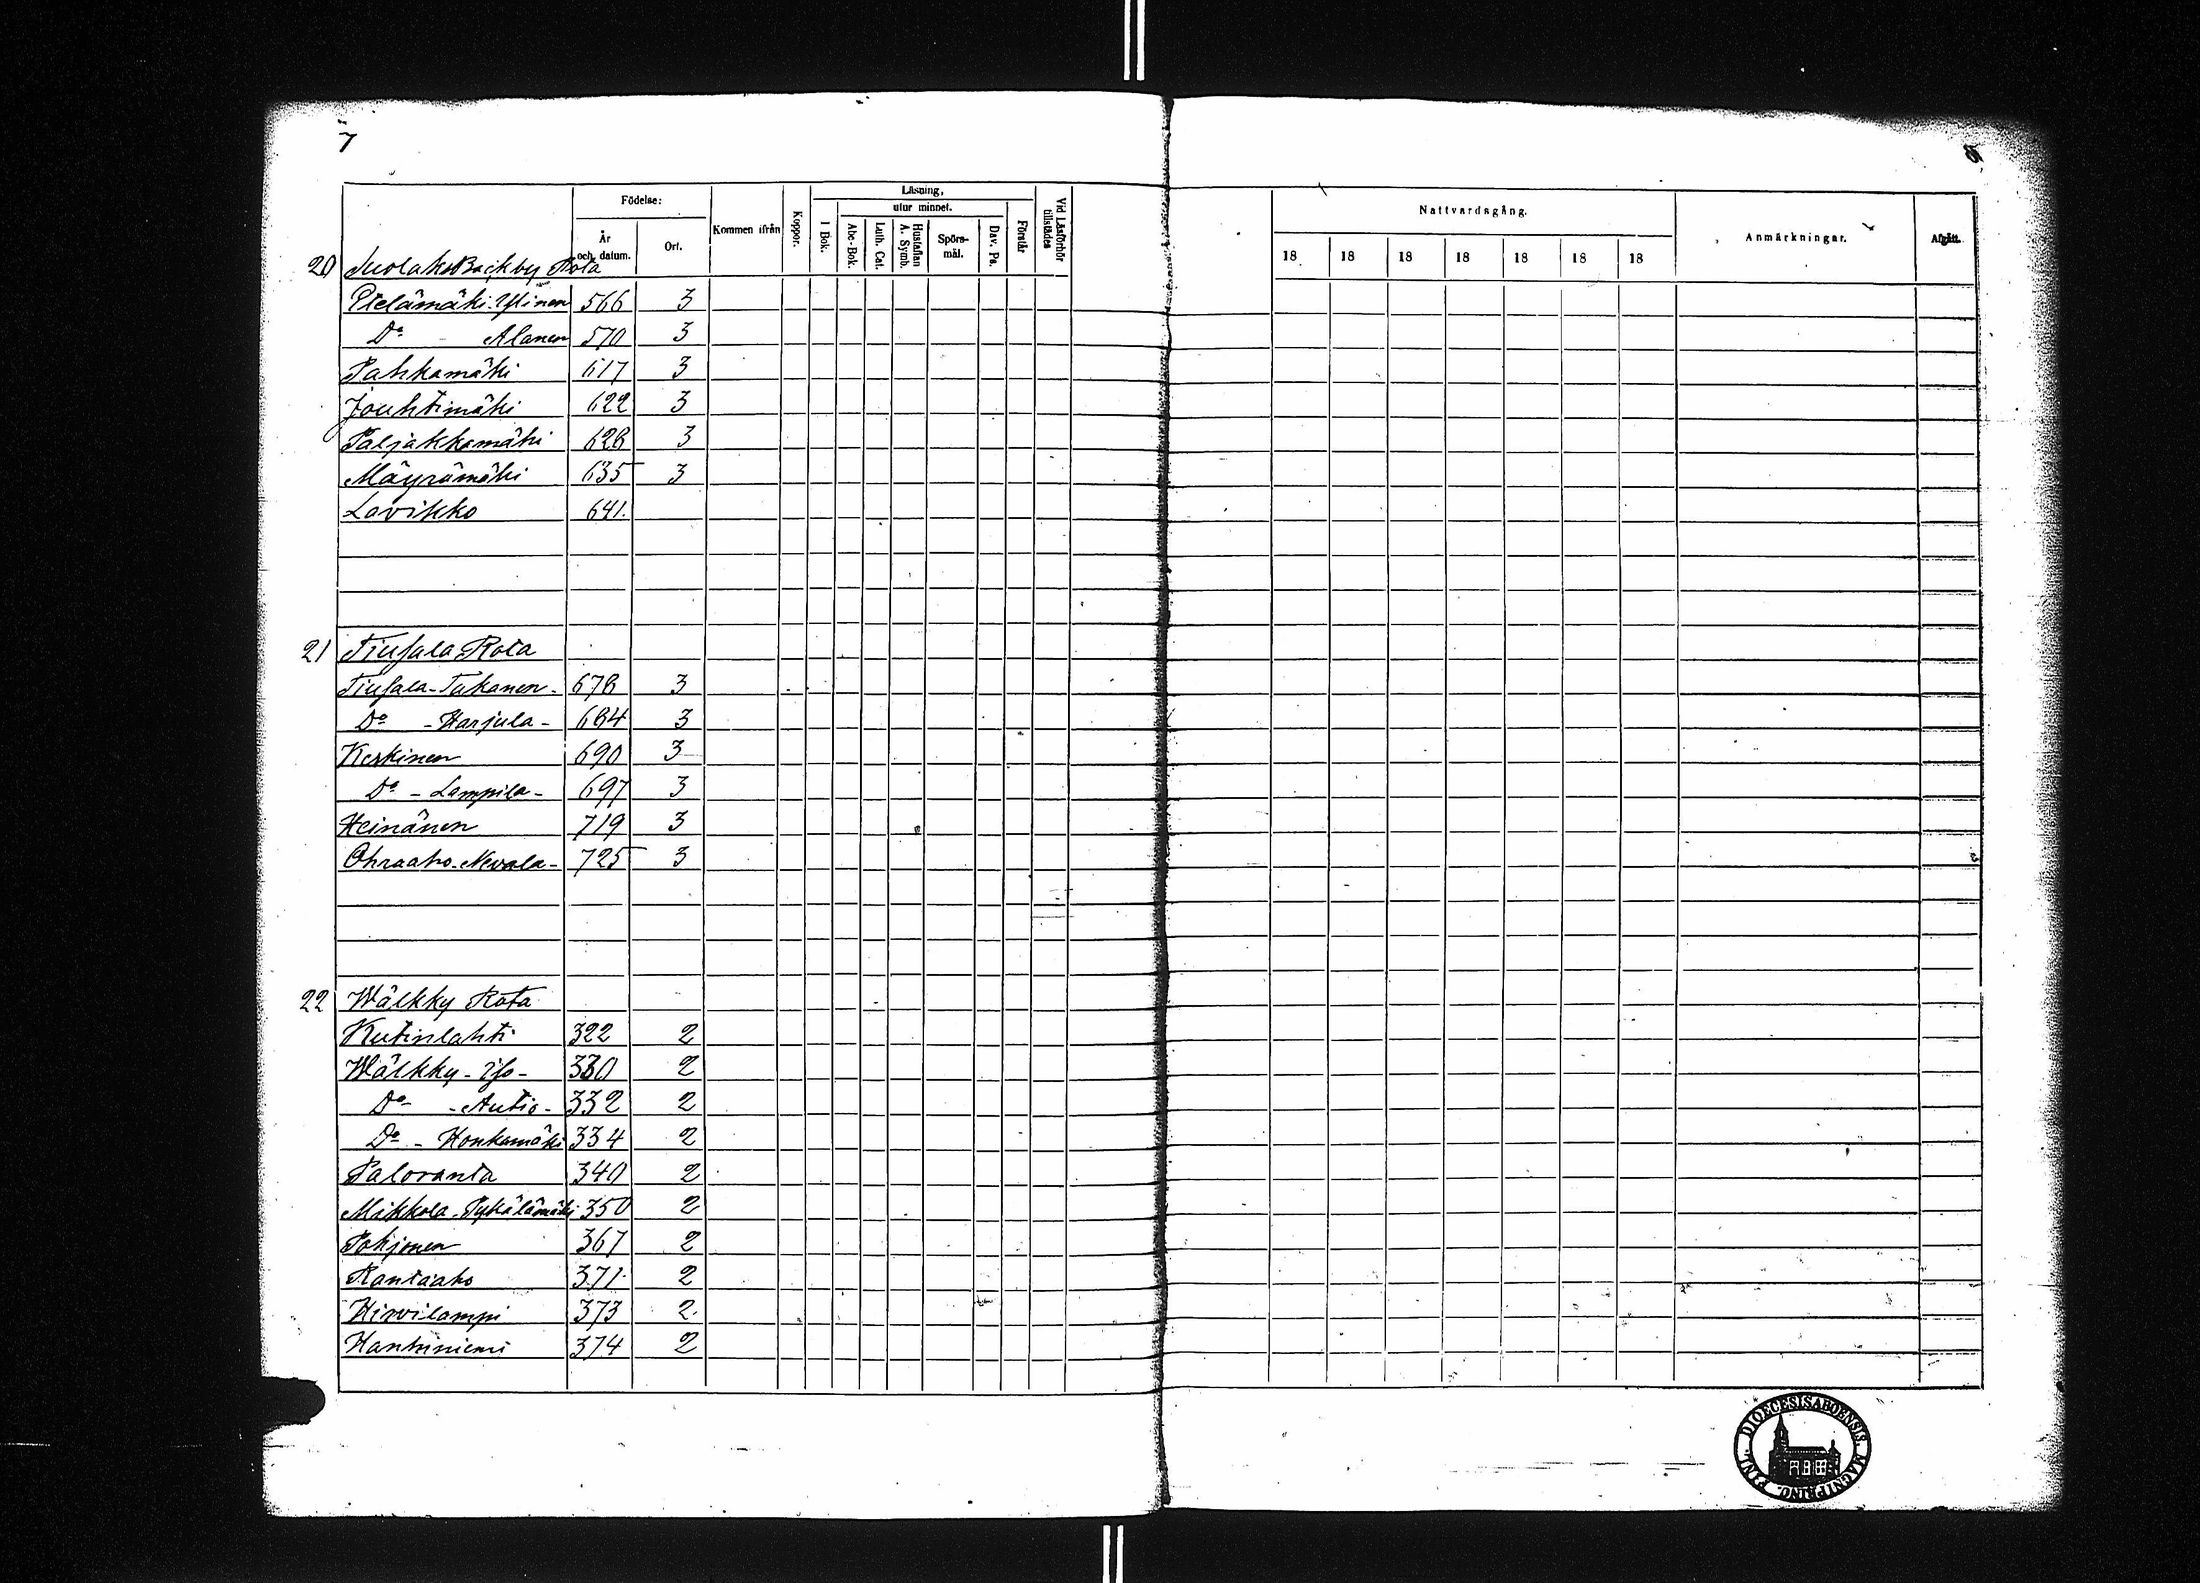 7
Födelse:
År och datum.
Ort.
Kommen ifrån
Koppor.
Läsning,
utur minnet.
I Bok.
Abc-Bok.
Luth. Cat.
Hustaflan A. Symb.
Spörsmål.
Dav. Ps.
Förstår
Vid Läsförhör tillstädes
Nattvardsgång.
18 18 18 18 18 18 18
Anmärkningar.
Afgått.
20 Rota
Pielämäki-Ylinen 566 3
Do - Alanen 570 3
Pahkamäki 617 3
Jouhtimäki 622 3
Paljakkamäki 628 3
Mäyrämäki 635 3
Lavikko 641.
21 Tiusala Rota
Tiusala-Takanen- 678 3
Do - Harjula - 684 3
Keskinen 690 3
Do - Lampila - 697 3
Heinänen 719 3
Ohraaho-Nevala- 725 3
22 Wälkky Rota
Kutinlahti 322 2
Wälkky-Iso- 330 2
Do - Autio - 332 2
Do - Honkamäki 334 2
Paloranta 340 2
Mikkola-Pykälämäki 350 2
Pohjonen 367 2
Rantaaho 371 2
Hirvilampi 373 2
Hantuniemi 374 2
DIOECESIS ABOENSIS. MAGNI PRINC. FINL.